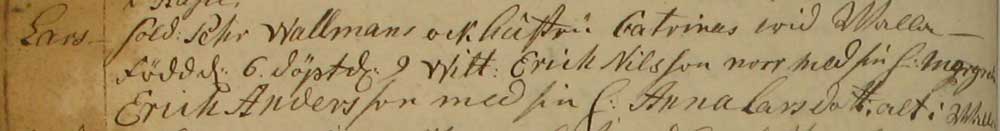 Lars — Sold: Pehr Wallmans ock hustru Catrinas wid Walla —
Född d: 6. döpt d: 9 Witt: Erich Nilsson norr med sin h: Margreta
Erich Andersson med sin h: Anna Larsdott: alt i Walla